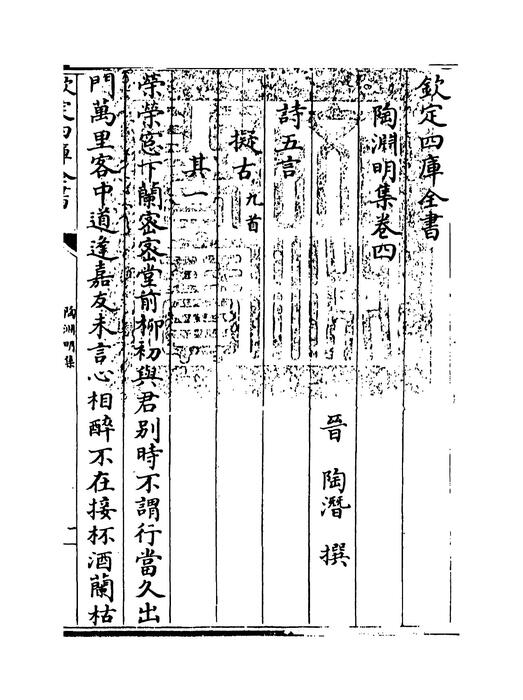 欽定四庫全書
陶淵明集卷四
晉 陶潛 撰
詩五言
擬古九首
其一
榮榮窓下蘭密密堂前柳初與君别時不謂行當久出
門萬里客中道逢嘉友未言心相醉不在接杯酒蘭枯
欽定四庫全書
陶淵明集
一